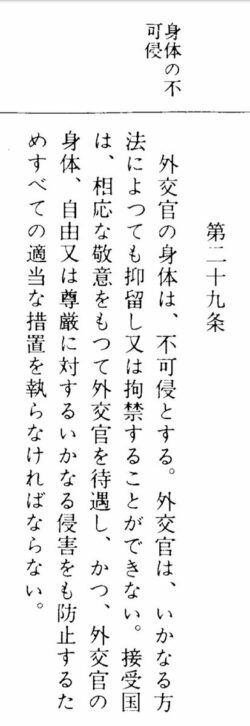 身体の不
可侵
第二十九条
外交官の身体は、不可侵とする。外交官は、いかなる方
法によつても抑留し又は拘禁することができない。接受国
は、相応な敬意をもつて外交官を待遇し、かつ、外交官の
身体、自由又は尊厳に対するいかなる侵害をも防止するた
めすべての適当な措置を執らなければならない。